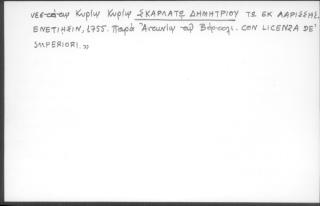 νεστάτῳ Κυρίῳ Κυρίῳ ΣΚΑΡΛΑΤῼ ΔΗΜΗΤΡΙΟΥ Τῼ ΕΚ ΛΑΡΙΣΣΗΣ.
ΕΝΕΤΙΗΣΙΝ, 1755. Παρὰ Ἀντωνίῳ τῷ Βόρτολι. CON LICENZA DE'
SUPERIORI. »